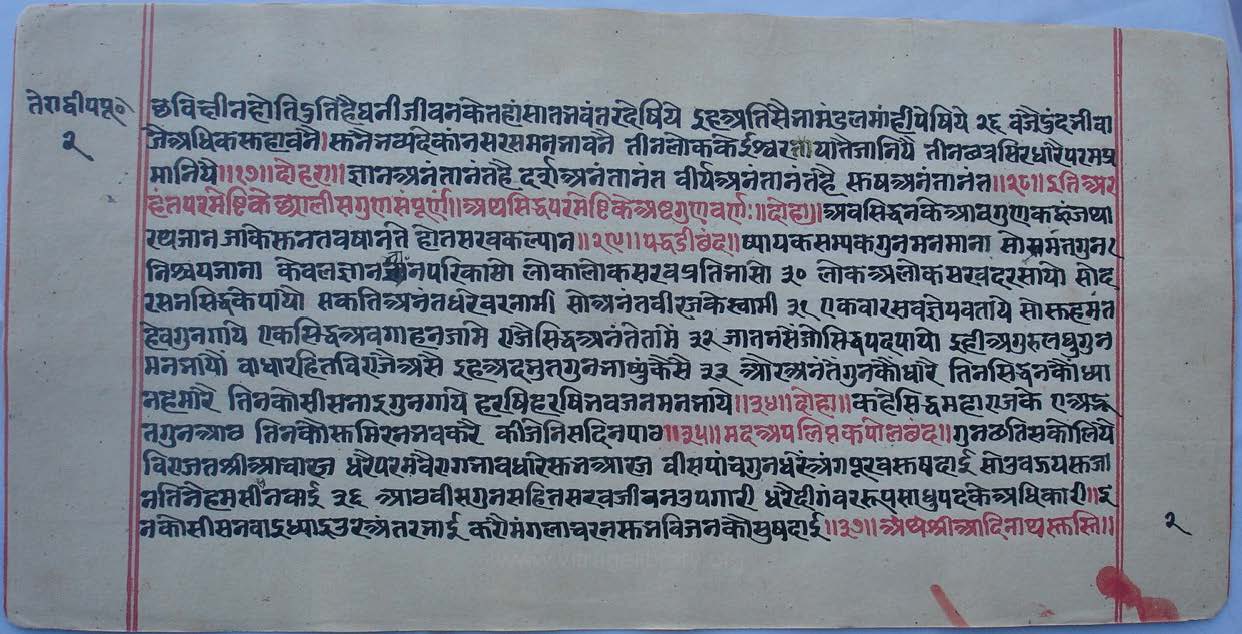 तेराद्वीपपू०
२
छविछीनहोतिदुतिहैघनीजीवनकेतहांसातनवंतरदेषिये इहअतिसैनामंडलमांहीपेषिये २६ वजैदुंदनीवा
जैअधिकसुहावनै।सुनैनव्यदेकांनसरसमननावनै तीनलोककेईश्वरतायातैजानियै तीनछत्रसिरधारैपरमप्र
मानियै॥२७॥दोहरा॥ज्ञानअनंतानंतहै दर्शअनंतानंत वीर्यअनंतानंतहै सुषअनंतानंत॥२८॥इतिअर
हंतपरमेष्टिकेछ्यालीसगुणसंपूर्ण॥अथसिद्धपरमेष्टिकेअष्टगुणवर्णः॥दोहा॥अवसिद्धनकेआठगुणकहूंजथा
रथजान जाकेसुनतवषानते होतसरवकल्यान॥२९॥पद्धडीछंद॥ष्यायकसम्यकगुनमनमाना सोसमतगुनर
निश्चयजाना केवलज्ञान परिकासो लोकालोकसरवप्रतिनासो ३० लोकअलोकसरवदरसायो सोद
रसनसिद्धकेपायो सकतिअनंतधरेवरनामी सोअनंतवीरजकेस्वामी ३१ एकवारसवज्ञेयवतायै सोसुहमंत
हेवगुनगायै एकसिद्धअवगाहनजामै राजैसिद्धअनंतेतामै ३२ जातनसैजोसिद्धपदपायो इहीअगुरुलघुगुन
मननायौ वाधारहितविराजैअैसै इहअदभुतगुननाष्युंकैसै ३३ औरअनंतगुनकौधारै तिनसिद्धनकौध्या
नहमारै तिनकौसीसनाइगुनगाये हरषिहरषिनवजनमननाये॥३४॥दोहा॥कहेसिद्धमहाराजके एअद्भु
तगुनआठ तिनकौसुमिरननवकरै कीजैनिसदिनपाठ॥३५॥मदअवलिप्तकपोलछंद॥गुनछतिसकौलियै
विराजतश्रीआचारज धरैपरमवैरागनावधारेसुनआरज वीसपांचगुनधरेअंगपूरवसुषदाई सोउवज्यसुजा
नतिनैहमसीनवाई ३६ आठवीसगुनसहितसरवजीवनउपगारी धरैदीगंवररूपसाधुपदकेअधिकारी॥इ
नकौसीसनवाइध्याइउरअंतरनाई करौमंगलाचरनसुनविजनकौसुषदाई॥३७॥अथश्रीआदिनाथस्तुस्ति॥
२